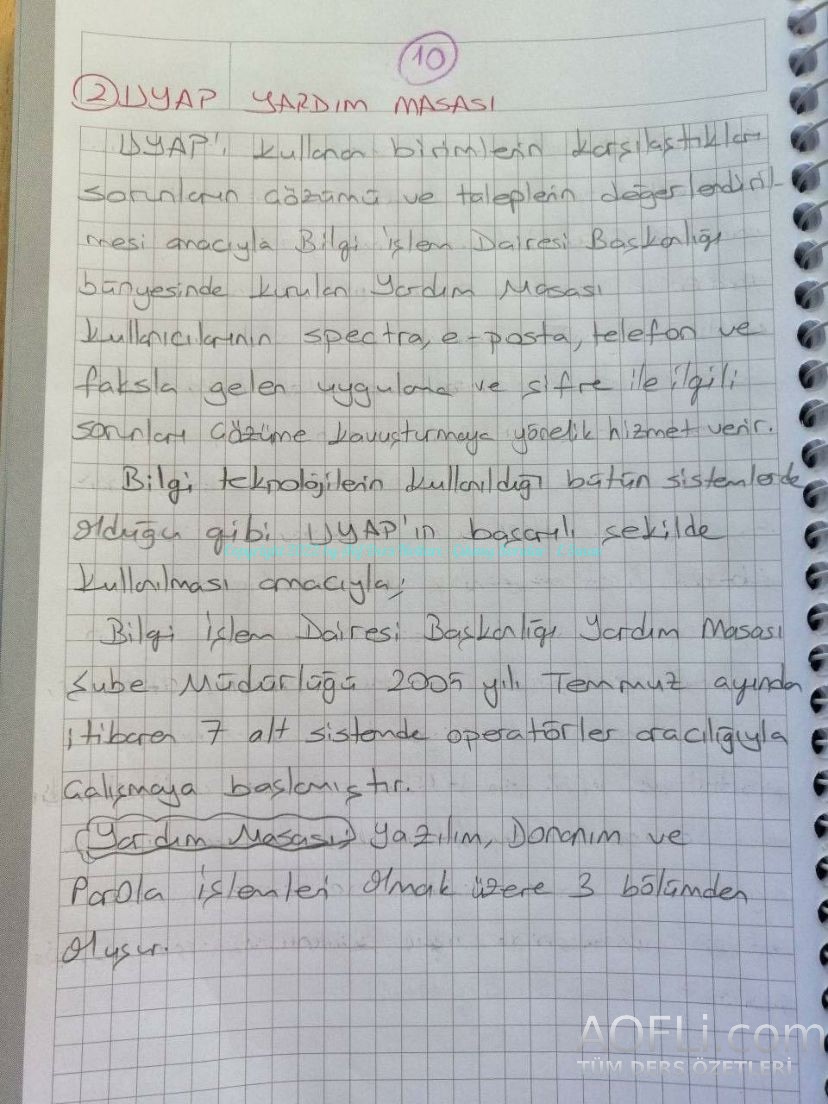 10
2 UYAP YARDIM MASASI
UYAP'ı kullanan birimlerin karşılaştıkları
sorunların çözümü ve taleplerin değerlendiril-
mesi amacıyla Bilgi işlem Dairesi Başkanlığı
bünyesinde kurulan Yardım Masası
kullanıcılarının spectra, e-posta, telefon ve
faksla gelen uygulama ve şifre ile ilgili
sorunları çözüme kavuşturmaya yönelik hizmet verir.
Bilgi teknolojilerin kullanıldığı bütün sistemlerde
olduğu gibi UYAP'ın başarılı şekilde
kullanılması amacıyla;
Bilgi İşlem Dairesi Başkanlığı Yardım Masası
Şube Müdürlüğü 2005 yılı Temmuz ayından
itibaren 7 alt sistemde operatörler aracılığıyla
çalışmaya başlamıştır.
(Yardım Masası;) Yazılım, Donanım ve
Parola işlemleri olmak üzere 3 bölümden
oluşur.
AOFLi.com
TÜM DERS ÖZETLERİ